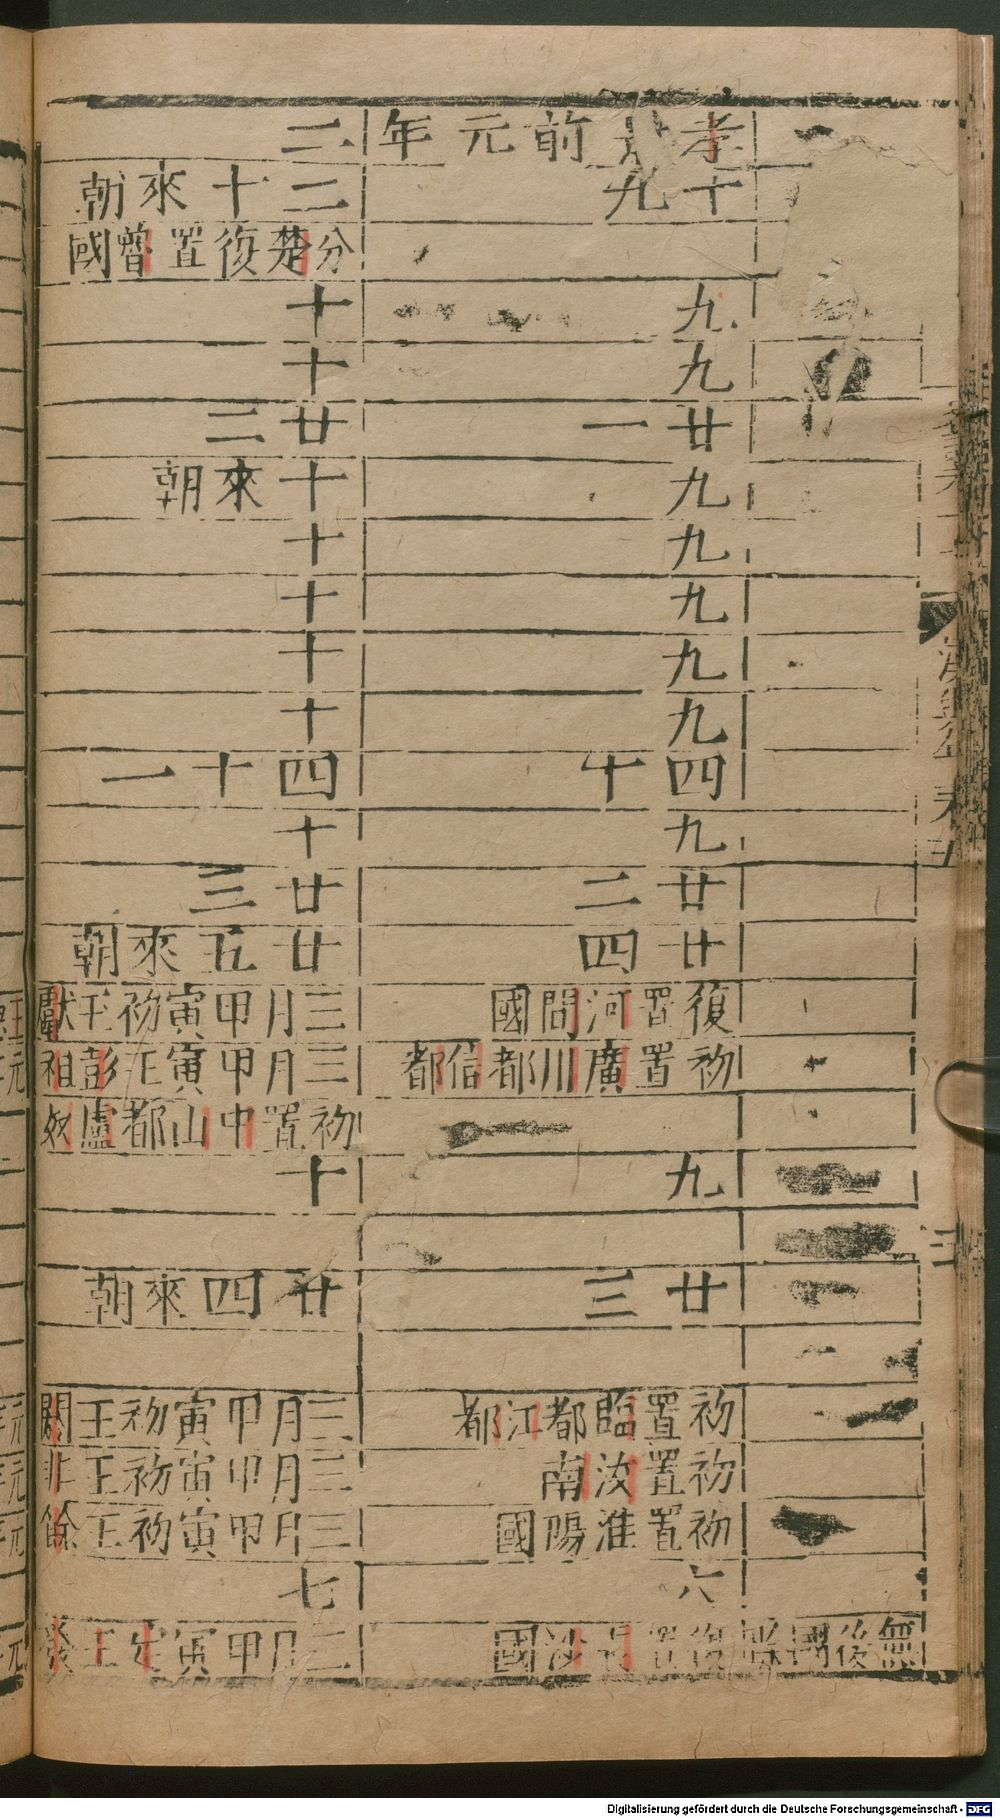 無後國除
孝前元年
十九
九
九
廿一
九
九
九
九
九
四十
九
廿二
廿四
復置河間國
初置廣川都信都
九
廿三
初置臨都江都
初置汝南
初置淮陽國
六
復置長沙國
二
二十來朝
分楚復置魯國
十
十
廿二
十來朝
十
十
十
十
四十一
十
廿三
廿五來朝
三月甲寅初王獻
三月甲寅王彭祖
初置中山都盧奴
十
廿四來朝
三月甲寅初王閼
三月甲寅初王非
三月甲寅初王餘
七
三月甲寅定王發
Digitalisierung gefördert durch die Deutsche Forschungsgemeinschaft - DFG